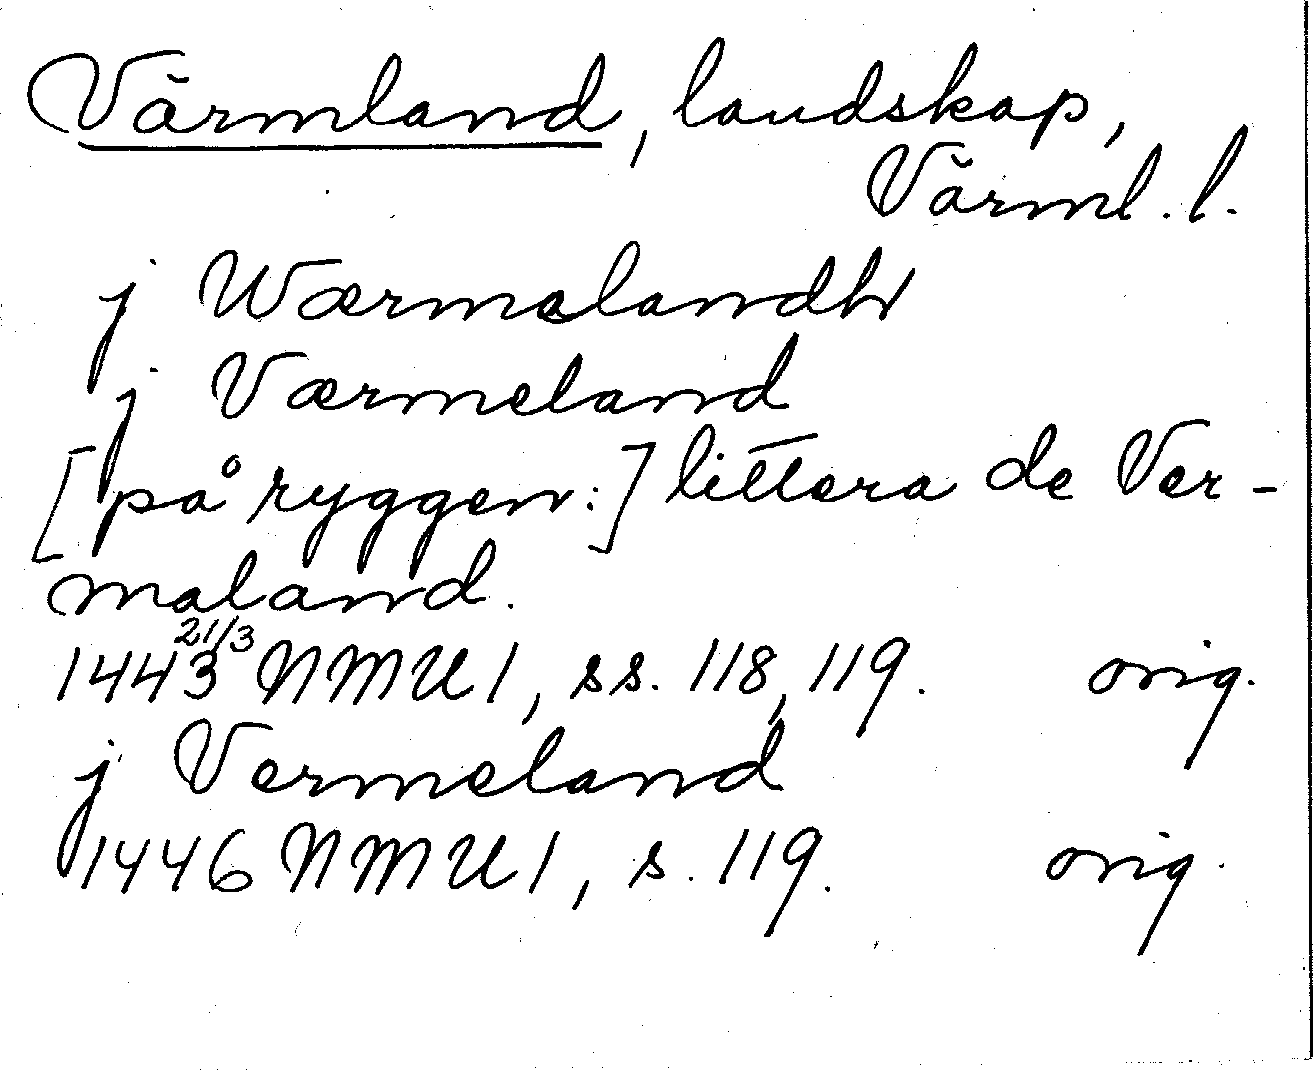 Värmland, landskap,
Värml. l.
j Wærmalandh
j Værmeland
[på ryggen:] littera de Ver-
maland.
1443 21/3 NMU 1, ss. 118, 119. orig.
j Vermeland
1446 NMU 1, s. 119. orig.